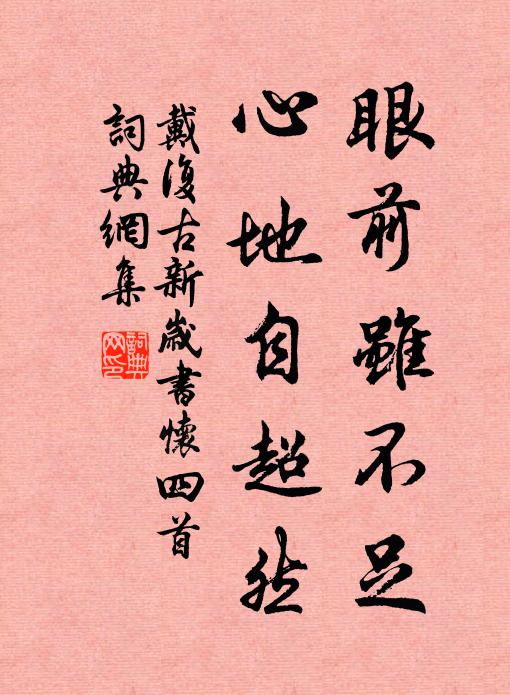 眼前雖不足
心地自超然
戴復古新歲書懷四首
詞典網集
詞典
网印